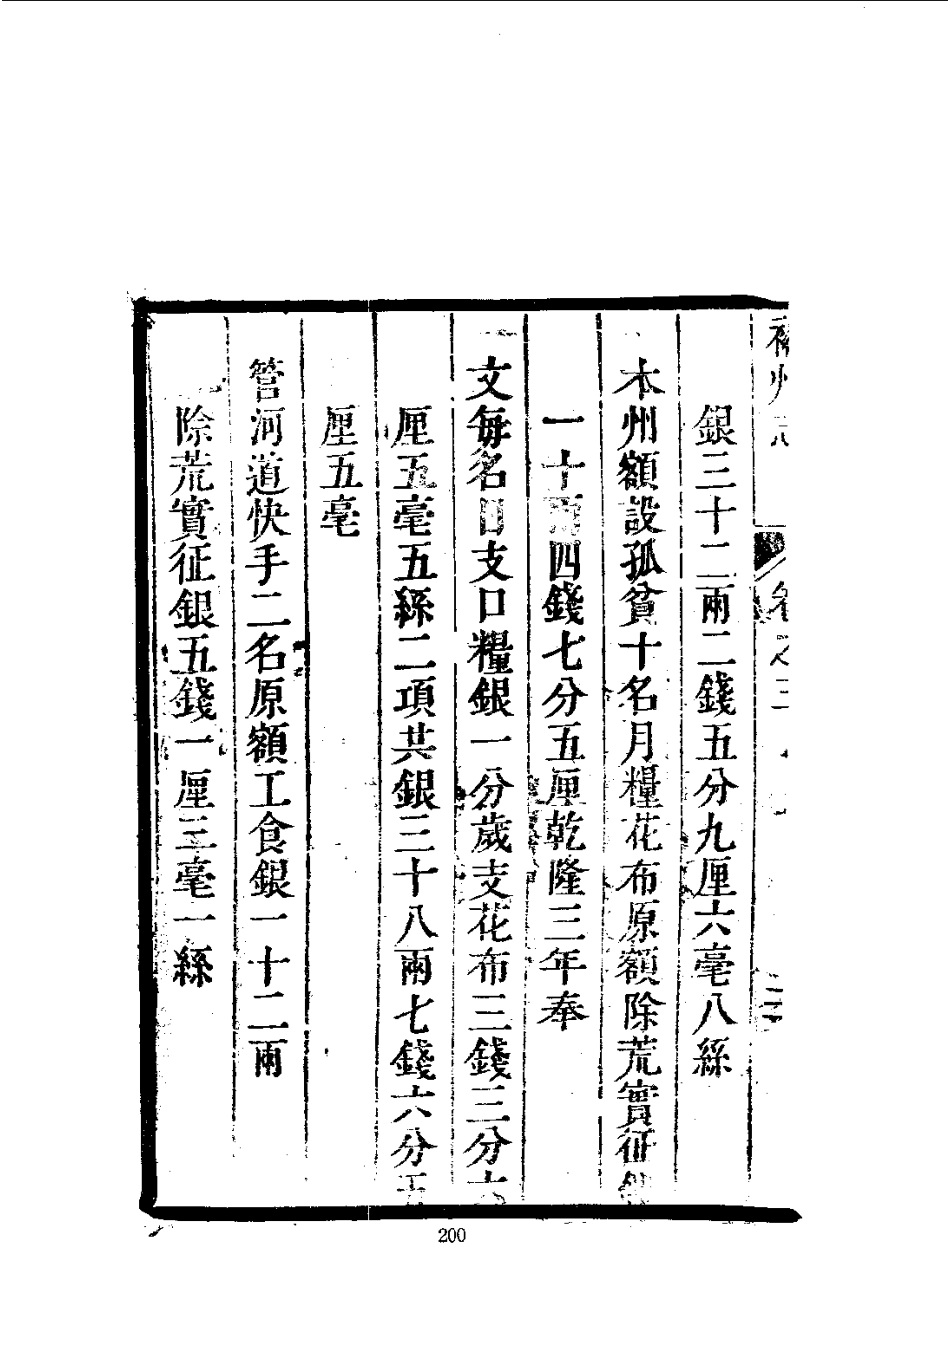 州志
卷之三
銀三十二兩二錢五分九厘六毫八絲
本州額設孤貧十名月糧花布原額除荒實征銀
一十兩四錢七分五厘乾隆三年奉
文每名日支口糧銀一分歲支花布三錢三分六
厘五毫五絲二項共銀三十八兩七錢六分五
厘五毫
管河道快手二名原額工食銀一十二兩
除荒實征銀五錢一厘三毫一絲
200